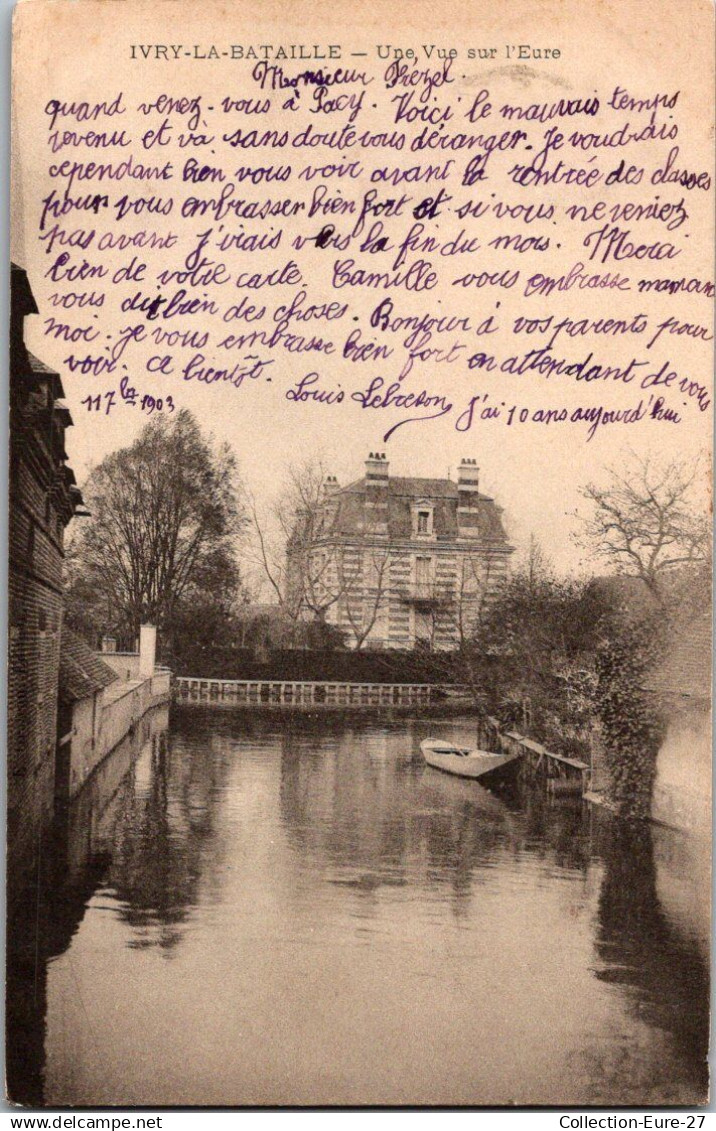 IVRY-LA-BATAILLE — Une Vue sur l'Eure
Monsieur Frézel.
quand venez-vous à Pacy. Voici le mauvais temps
revenu et va sans doute vous déranger. Je voudrais
cependant bien vous voir avant la rentrée des classes
pour vous embrasser bien fort et si vous ne veniez
pas avant j'irais vers la fin du mois. Merci
bien de votre carte. Camille vous embrasse maman
vous dit bien des choses. Bonjour à vos parents pour
moi. je vous embrasse bien fort en attendant de vous
voir. a bientôt.
Louis Lebreton
1903
J'ai 10 ans aujourd'hui
Collection-Eure-27